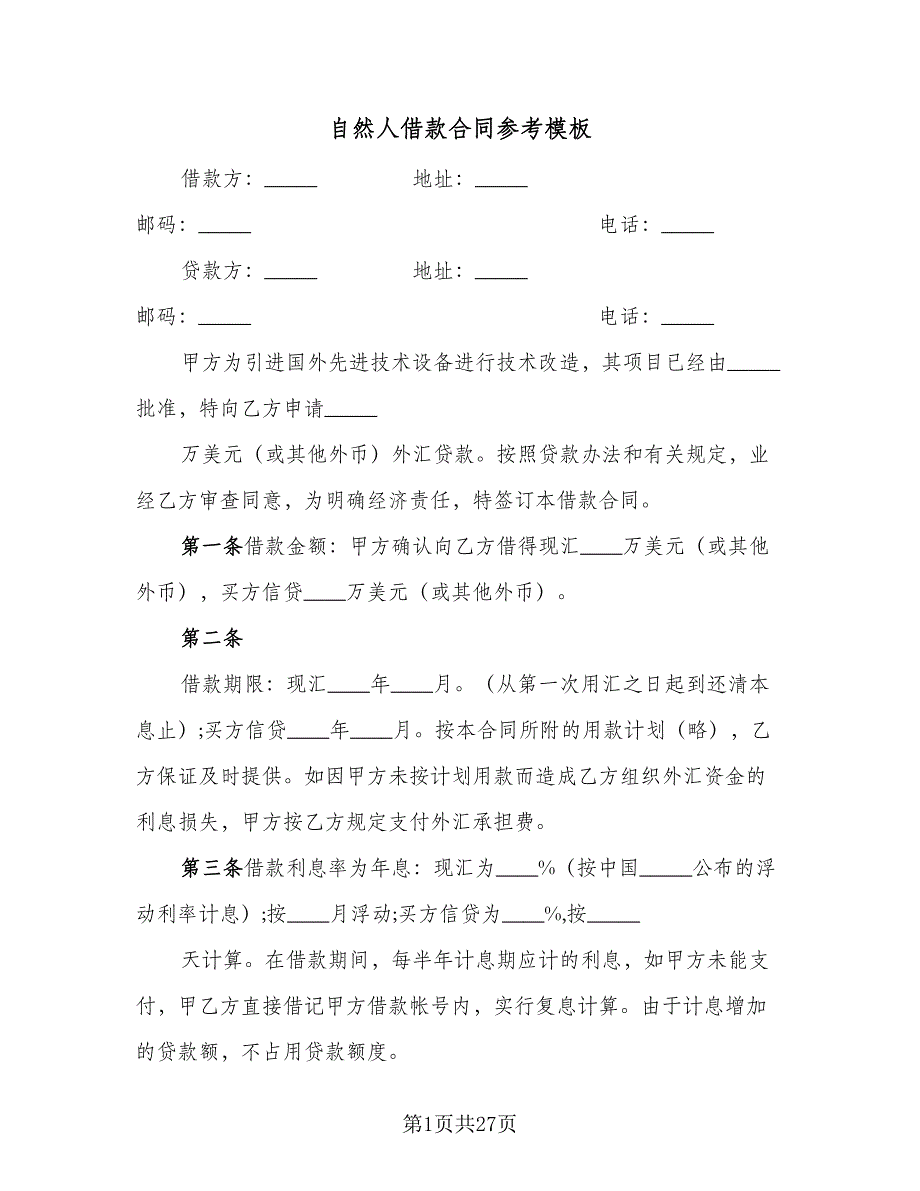 自然人借款合同参考模板
借款方：_____ 地址：_____
邮码：_____ 电话：_____
贷款方：_____ 地址：_____
邮码：_____ 电话：_____
甲方为引进国外先进技术设备进行技术改造，其项目已经由_____
批准，特向乙方申请_____
万美元（或其他外币）外汇贷款。按照贷款办法和有关规定，业
经乙方审查同意，为明确经济责任，特签订本借款合同。
第一条借款金额：甲方确认向乙方借得现汇____万美元（或其他
外币），买方信贷____万美元（或其他外币）。
第二条
借款期限：现汇____年____月。（从第一次用汇之日起到还清本
息止）;买方信贷____年____月。按本合同所附的用款计划（略），乙
方保证及时提供。如因甲方未按计划用款而造成乙方组织外汇资金的
利息损失，甲方按乙方规定支付外汇承担费。
第三条借款利息率为年息：现汇为____%（按中国_____公布的浮
动利率计息）;按____月浮动;买方信贷为____%,按_____
天计算。在借款期间，每半年计息期应计的利息，如甲方未能支
付，甲乙方直接借记甲方借款帐号内，实行复息计算。由于计息增加
的贷款额，不占用贷款额度。
第1页共27页